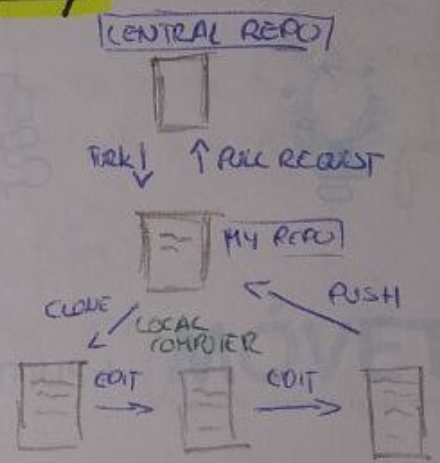 CENTRAL REPO
FORK
PULL REQUEST
MY REPO
CLONE
PUSH
LOCAL
COMPUTER
EDIT
EDIT